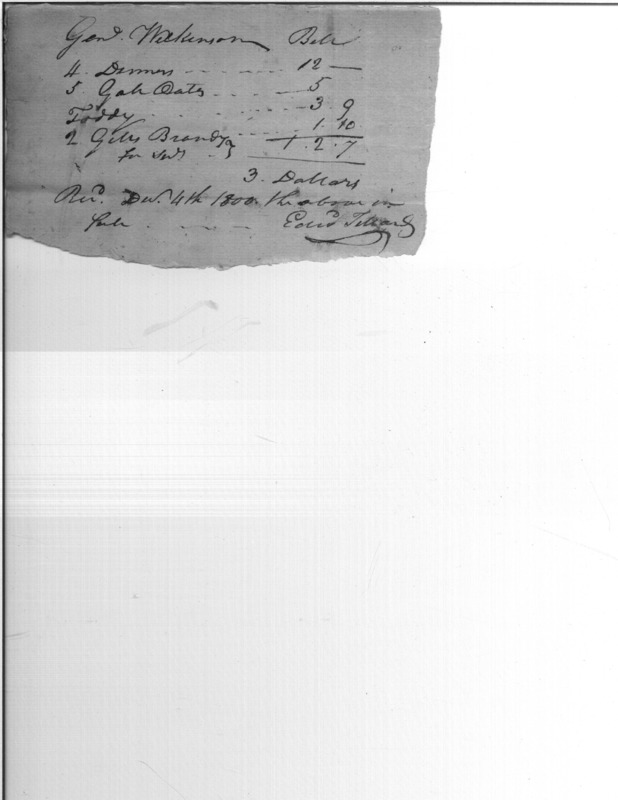 Genl. Wilkinson Bill
4 Dinners - - - - 12 —
5 Galls Oats - - - 5
Toddy - - - - 3.9
2 Gills Brandy - - 1.10
for Servt } 1.2.7
3. Dollars
Recd. Decr. 4th 1800 the above in
full - - - Edwd Tillard